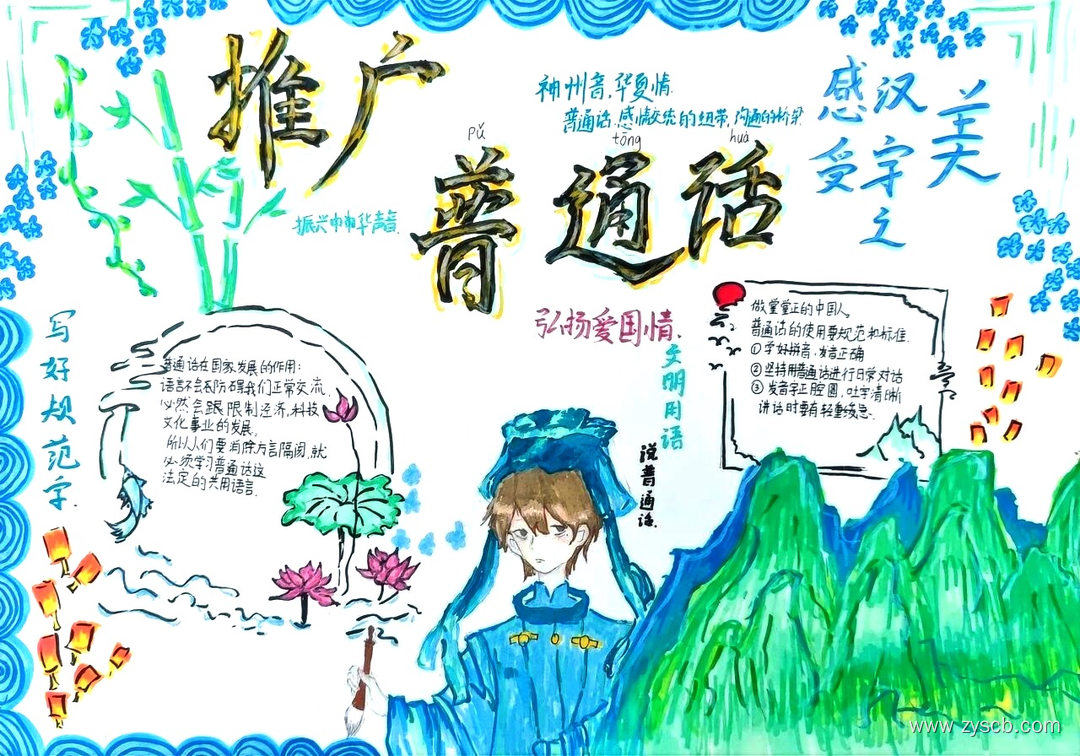 推广
pǔ tōng huà
普通话
神州音，华夏情
普通话，感情交流的纽带，沟通的桥梁
感受
汉字之
美
振兴中华声音
弘扬爱国情
文明用语
说普通话
写好规范字
普通话在国家发展的作用：
语言不会碍我们正常交流，
必然会跟限制经济，科技
文化事业的发展。
所以人们要消除方言隔阂，就
必须学习普通话这
法定的共用语言
做堂堂正的中国人
普通话的使用要规范和标准
①学好拼音，发音正确
②坚持用普通话进行日常对话
③发音字正腔圆，吐字清晰
讲话时要有轻重缓急
www.zyscb.com